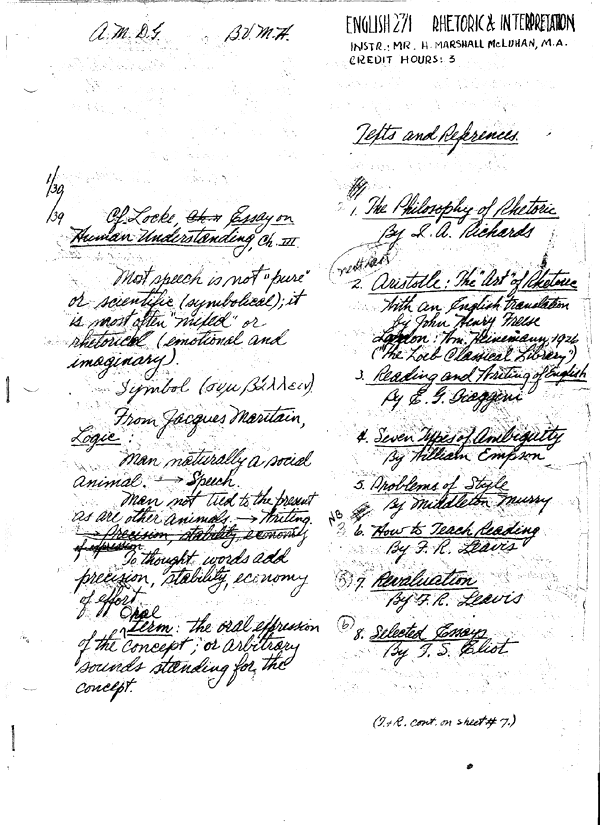 A.M.D.G. B.V.M.H.
1/30/39
Cf. Locke, Essay on
Human Understanding, Ch. III.
Most speech is not "pure"
or scientific (symbolical); it
is most often "mixed" or
rhetorical (emotional and
imaginary).
Symbol (συμ βάλλειν)
From Jacques Maritain,
Logic:
Man naturally a social
animal. → Speech.
Man not tied to the present
as are other animals. → Writing.
→ Precision, stability, economy
of expression
To thought, words add
precision, stability, economy
of effort.
Oral
Term: the oral expression
of the concept; or arbitrary
sounds standing for the
concept.
ENGLISH 271 RHETORIC & INTERPRETATION
INSTR.: MR. H. MARSHALL McLUHAN, M.A.
CREDIT HOURS: 3
Texts and References.
1. The Philosophy of Rhetoric
By I. A. Richards
2. Aristotle: The "Art" of Rhetoric
With an English Translation
by John Henry Freese
London: Wm. Heinemann, 1926
("The Loeb Classical Library")
3. Reading and Writing of English
By E. G. Biaggini
4. Seven Types of Ambiguity
By William Empson
5. Problems of Style
By Middleton Murry
NB
3 6. How to Teach Reading
By F. R. Leavis
(5) 7. Revaluation
By F. R. Leavis
(6) 8. Selected Essays
By T. S. Eliot
(T.+R. cont. on sheet # 7.)